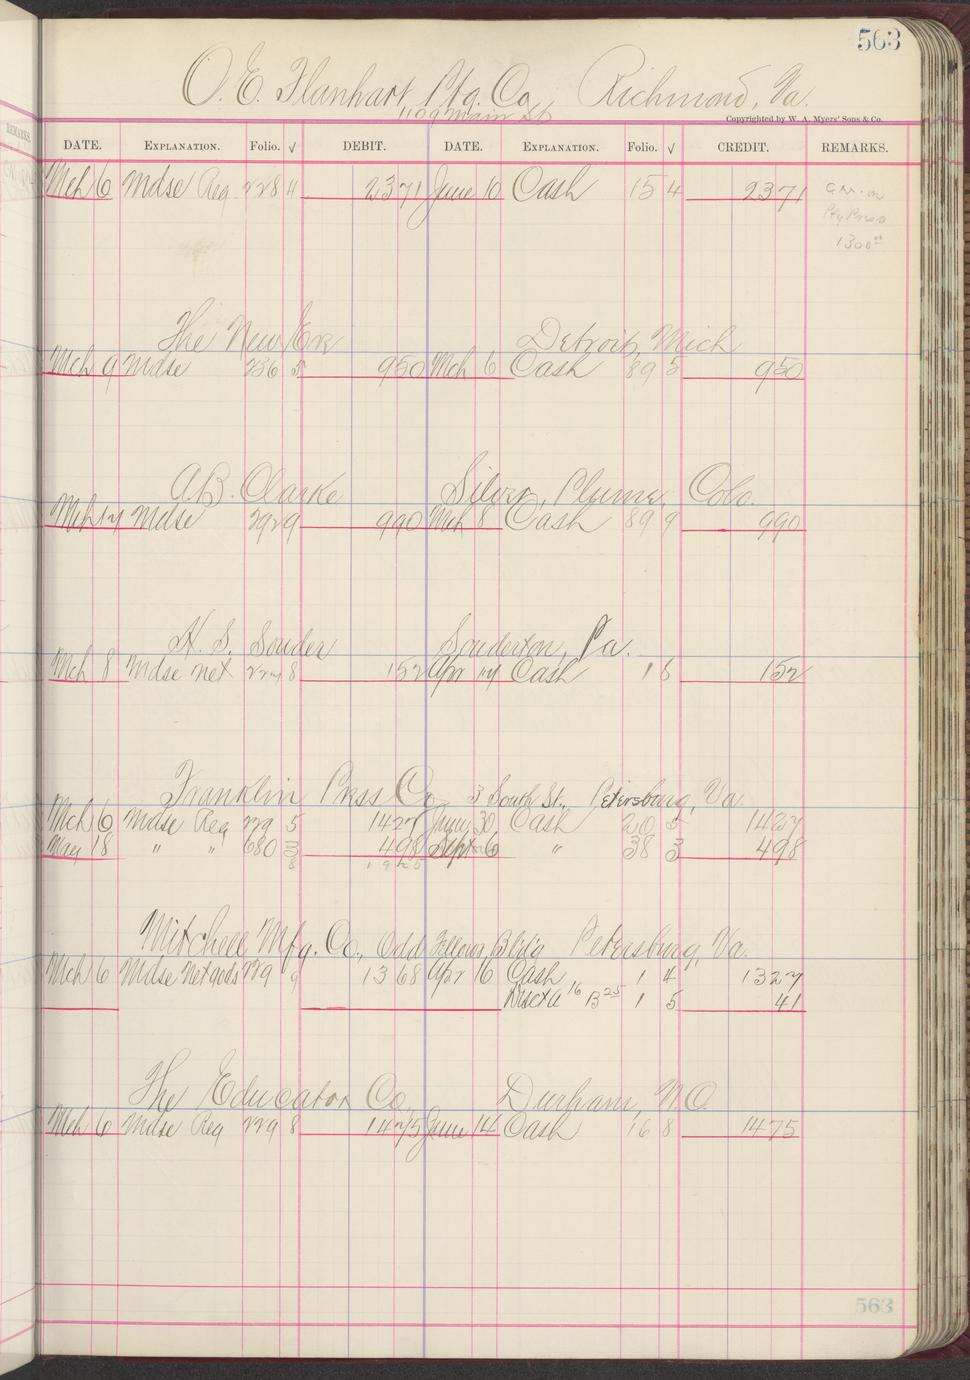 563
O. E. Flanhart Ptg. Co. Richmond, Va.
1109 Main St.
Copyrighted by W. A. Myers' Sons & Co.
DATE. EXPLANATION. Folio. √ DEBIT. DATE. EXPLANATION. Folio. √ CREDIT. REMARKS.
Mch 6 Mdse Reg 228 4 23 71 June 10 Cash 15 4 23 71
1300
The New Era Detroit, Mich
Mch 9 Mdse 236 5 9 50 Mch 6 Cash 89 5 9 50
A B. Clarke Silver Plume, Colo.
Mch 14 Mdse 292 9 9 90 Mch 8 Cash 89 9 9 90
H. S. Souder Souderton, Pa.
Mch 8 Mdse net 224 8 1 52 Apr 14 Cash 1 6 1 52
Franklin Press Co 3 South St., Petersburg, Va.
Mch 6 Mdse Reg 229 5 14 27 June 30 Cash 20 5 14 27
May 18 " " 680 3 4 98 Sept 6 " 38 3 4 98
8 19 25
Mitchell Mfg. Co., Odd Fellows Bld'g Petersburg, Va.
Mch 6 Mdse Net gods 229 9 13 68 Apr 16 Cash 1 4 13 27
16 B 25 1 5 41
The Educator Co, Durham, N.C.
Mch 6 Mdse Reg 229 8 14 75 June 14 Cash 16 8 14 75
563